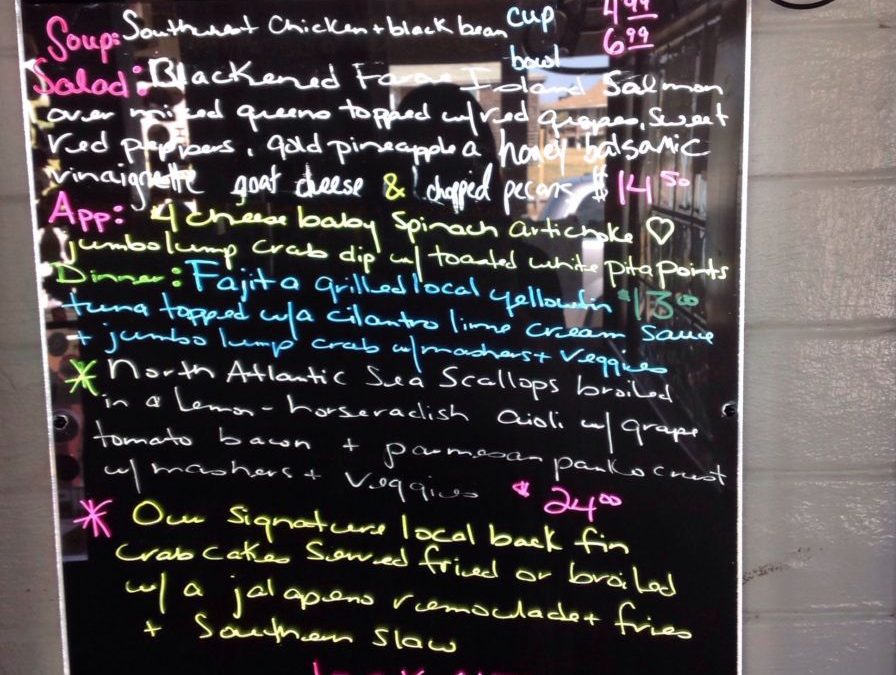 Soup: Southwest Chicken + black bean cup 4 99
bowl 6 99
Salad: Blackened Faroe Island Salmon
over mixed greens topped w/ red grapes, sweet
red peppers, gold pineapple a honey balsamic
vinaigrette goat cheese & chopped pecans $14 50
App: 4 cheese baby Spinach Artichoke ♡
jumbo lump crab dip w/ toasted white pita points
Dinner: Fajita grilled local yellowfin $13 00
tuna topped w/a cilantro lime cream sauce
+ jumbo lump crab w/mashers + veggies
* North Atlantic Sea Scallops broiled
in a Lemon-horseradish aioli w/ grape
tomato bacon + parmesan panko crust
w/mashers + Veggies $24 00
* Our Signature local back fin
crab cakes Served fried or broiled
w/ a jalapeno remoulade + fries
+ Southern Slaw